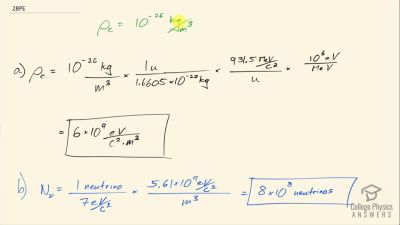 28PE
ρc = 10^-26 kg/m^3
a) ρc = 10^-26 kg / m^3 × 1u / 1.6605 × 10^-27 kg × 931.5 MeV/c^2 / u × 10^6 eV / MeV
= 6 × 10^9 eV / c^2 · m^3
b) Nν = 1 neutrino / 7 eV/c^2 × 5.61 × 10^9 eV/c^2 / m^3 = 8 × 10^8 neutrinos
College Physics
ANSWERS